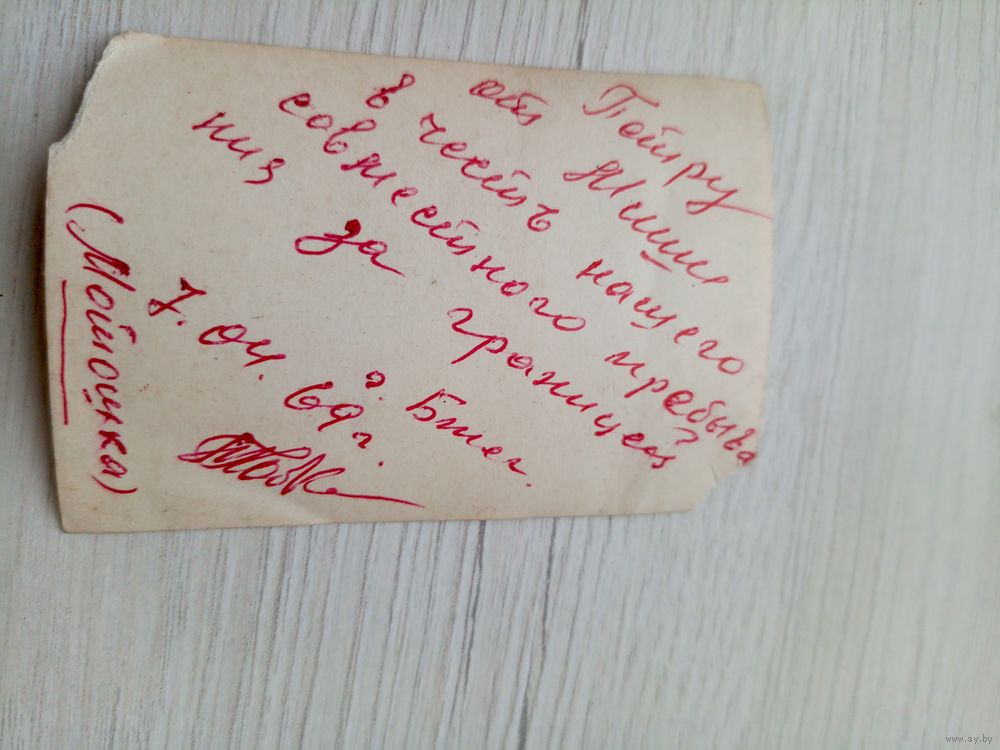 Петру
от Миши
в честь нашего
совместного пребыва
ния за границей
г. Бжег.
7. 04. 69 г.
(Мотошка)
www.ay.by